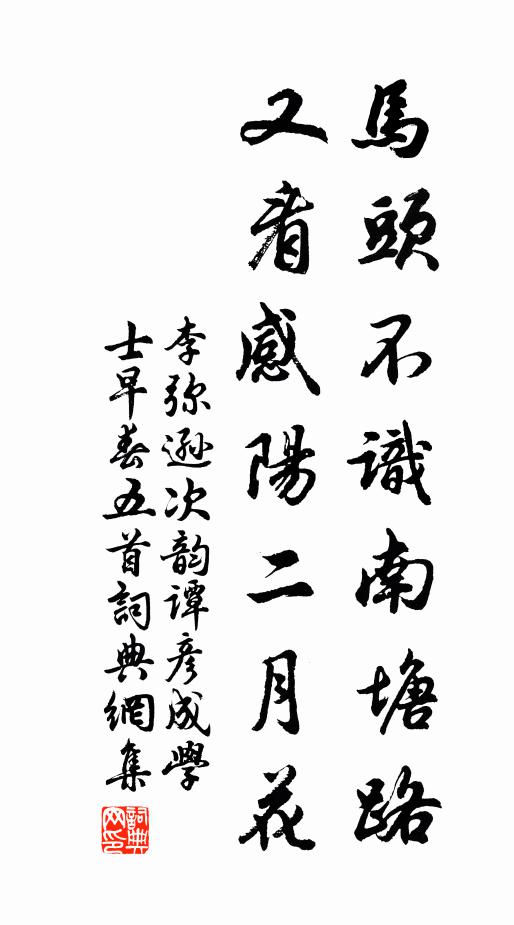 馬頭不識南塘路
又看感陽二月花
李弥遜次韵谭彦成學
士早春五首詞典網集
詞典网印